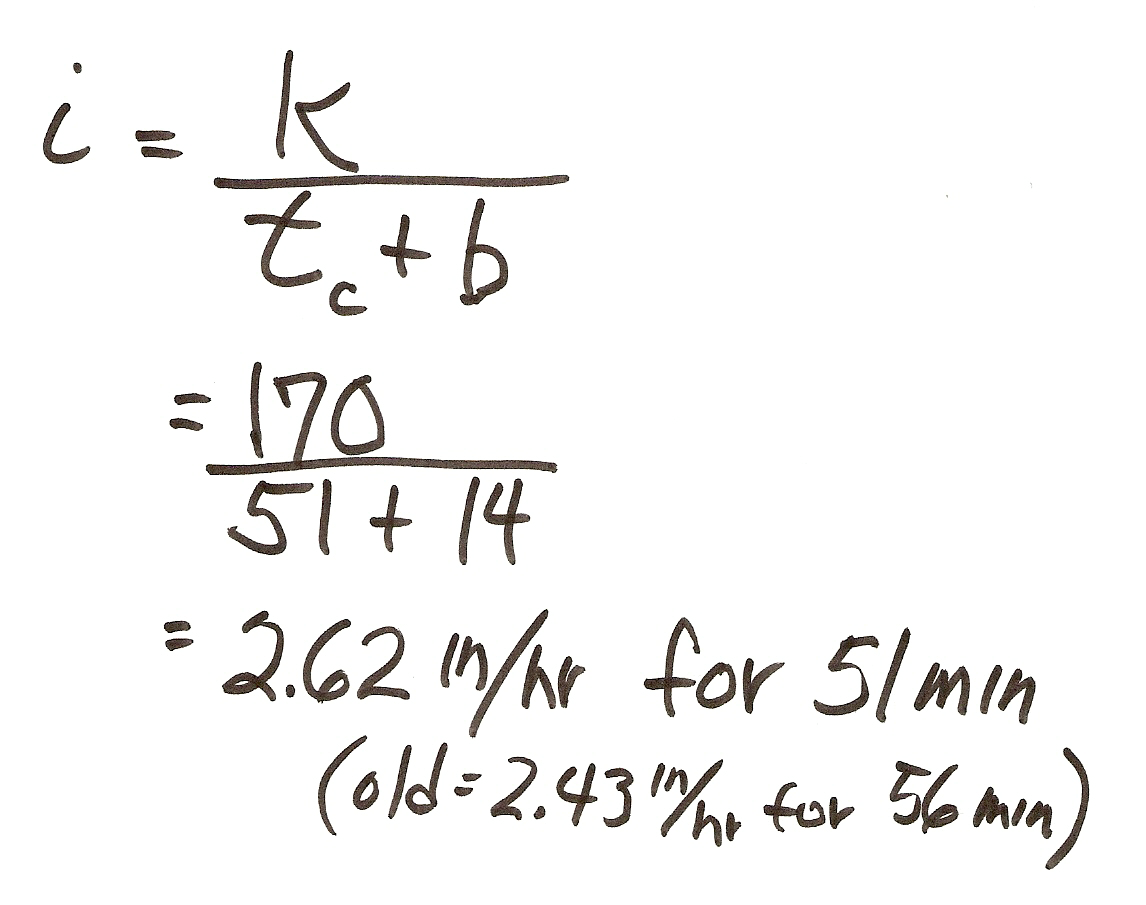 i = K
t_c + b
= 170
51 + 14
= 2.62 in/hr for 51 min
(old = 2.43 in/hr for 56 min)